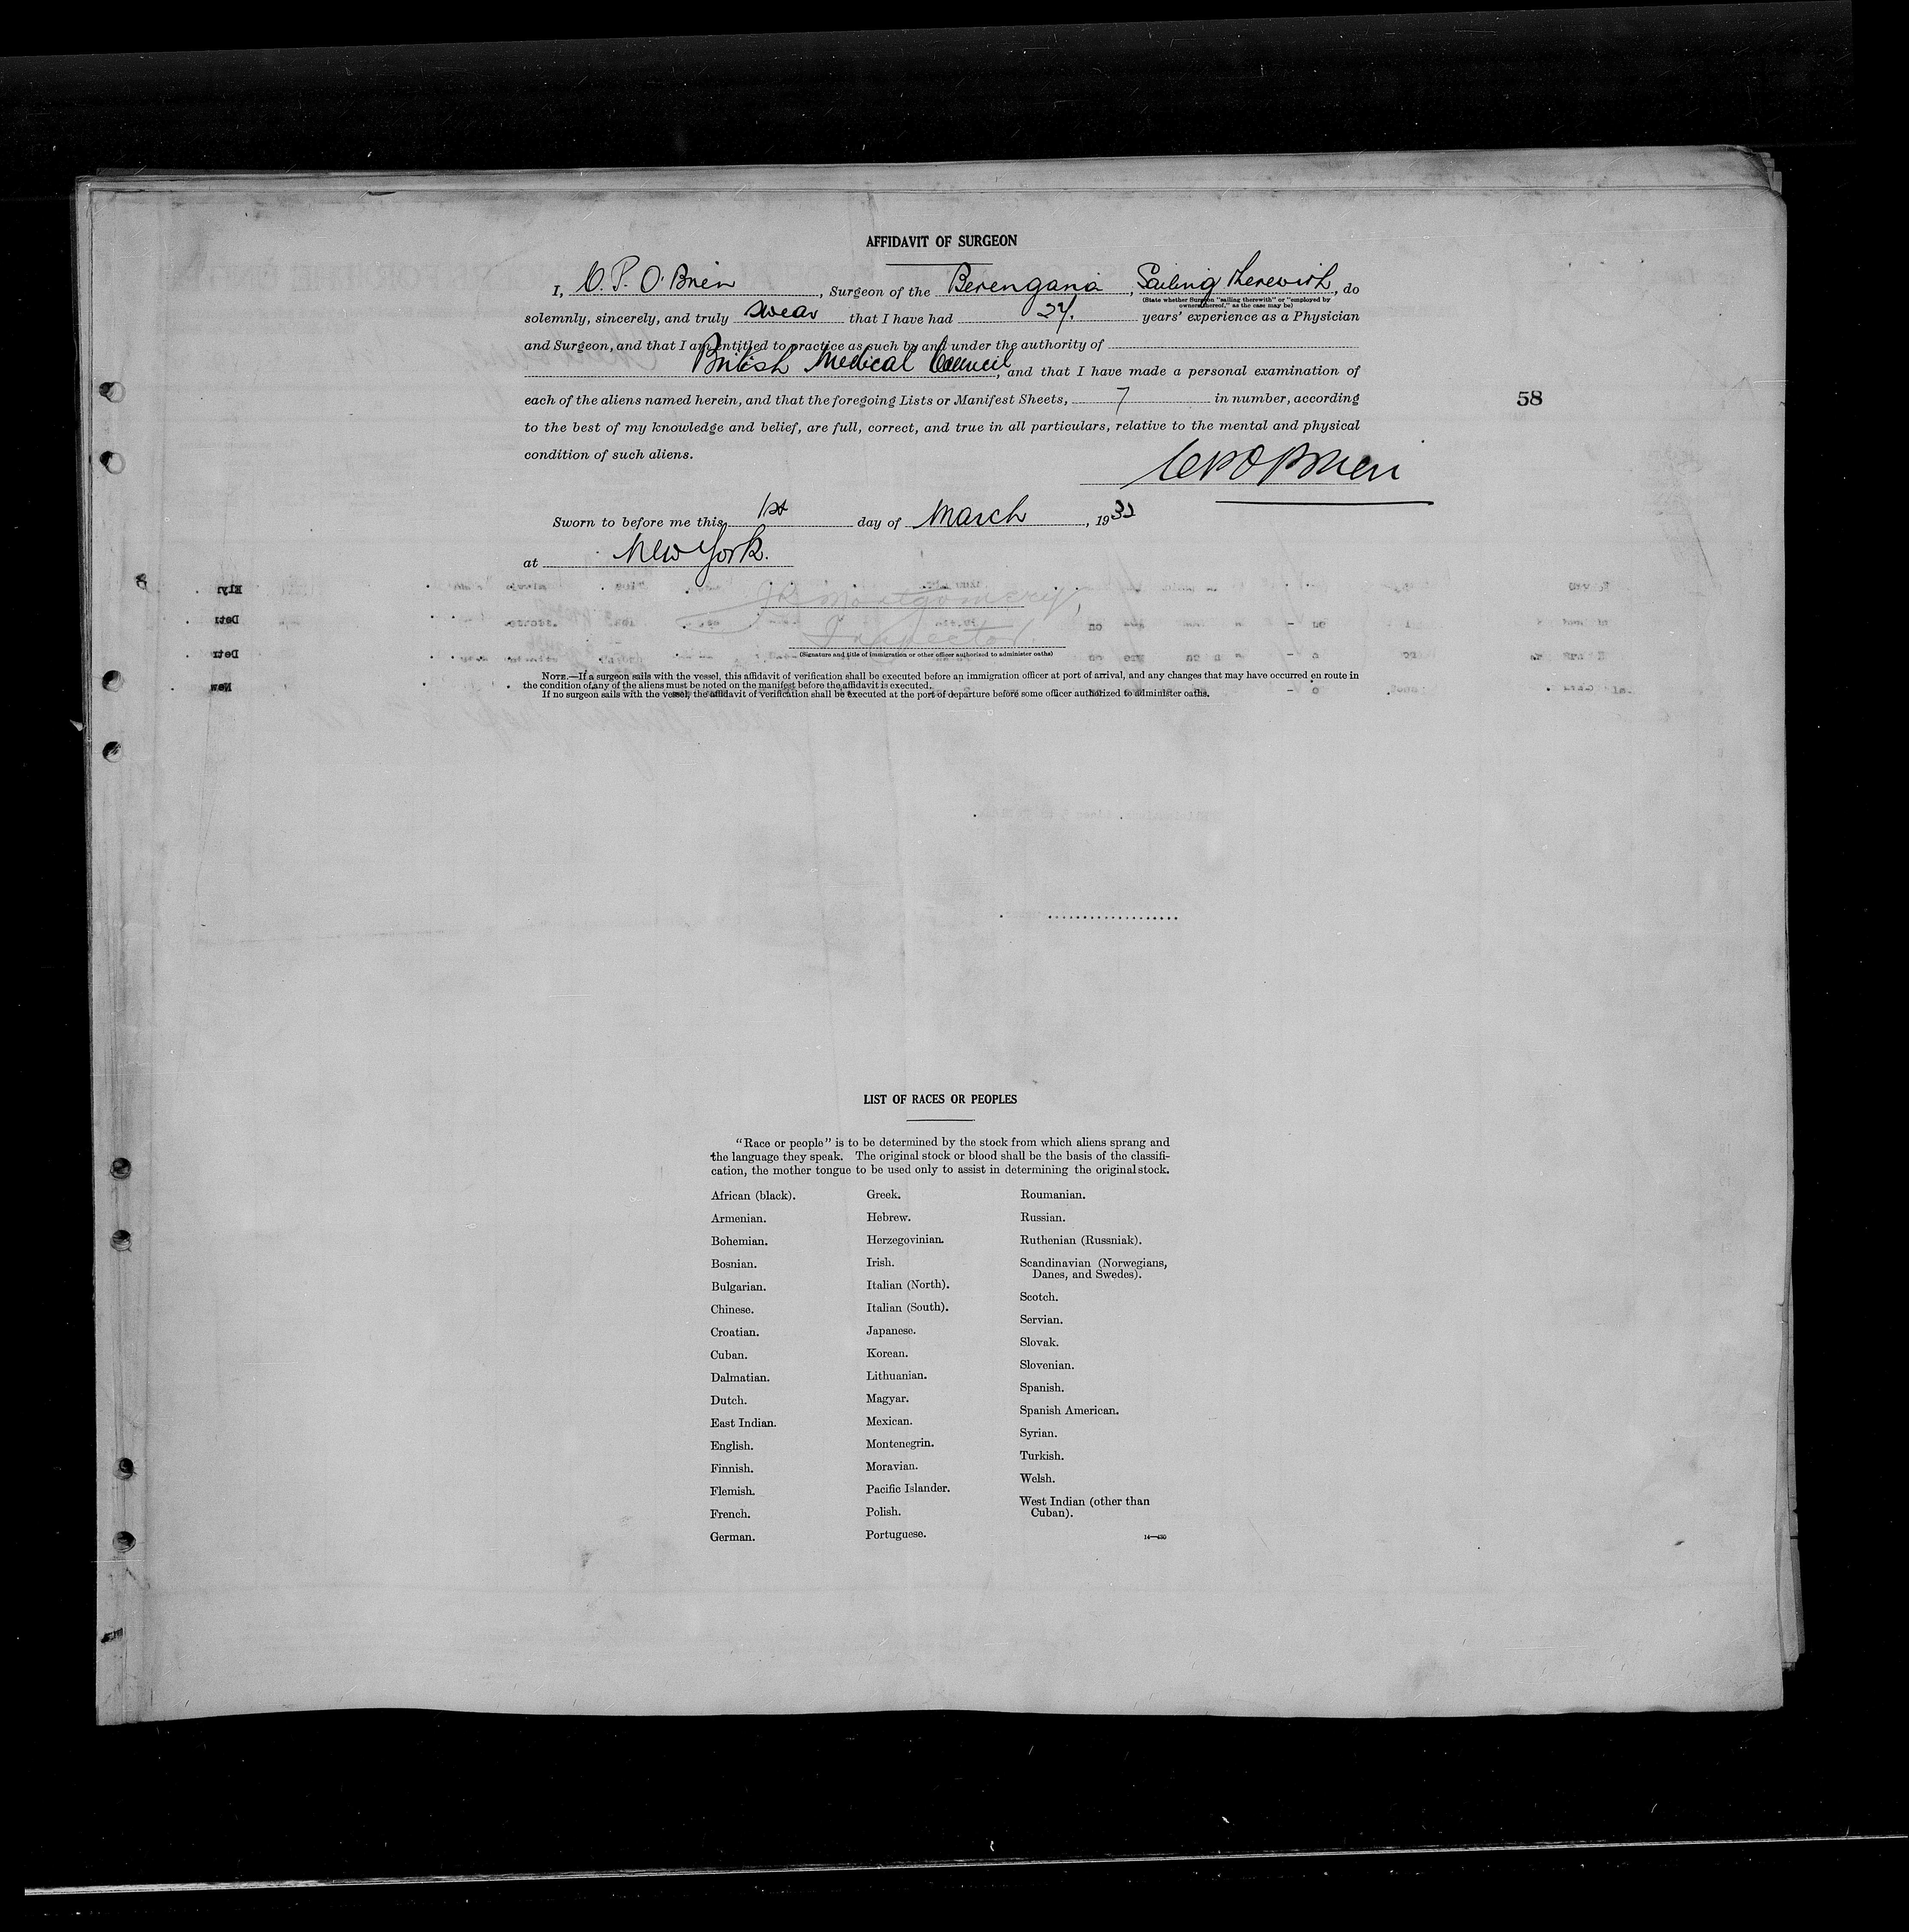 AFFIDAVIT OF SURGEON
I, C. P. O'Brien, Surgeon of the Berengaria, Sailing therewith, do
(State whether Surgeon "sailing therewith" or "employed by
owners thereof," as the case may be)
solemnly, sincerely, and truly swear that I have had 24. years' experience as a Physician
and Surgeon, and that I am entitled to practice as such by and under the authority of
British Medical Council, and that I have made a personal examination of
each of the aliens named herein, and that the foregoing Lists or Manifest Sheets, 7 in number, according
58
to the best of my knowledge and belief, are full, correct, and true in all particulars, relative to the mental and physical
condition of such aliens.
CPO'Brien
Sworn to before me this 1st day of March, 1932
at New York.
Montgomery,
Inspector.
(Signature and title of immigration or other officer authorized to administer oaths)
NOTE.—If a surgeon sails with the vessel, this affidavit of verification shall be executed before an immigration officer at port of arrival, and any changes that may have occurred en route in
the condition of any of the aliens must be noted on the manifest before the affidavit is executed.
If no surgeon sails with the vessel, the affidavit of verification shall be executed at the port of departure before some officer authorized to administer oaths.
LIST OF RACES OR PEOPLES
"Race or people" is to be determined by the stock from which aliens sprang and
the language they speak. The original stock or blood shall be the basis of the classifi-
cation, the mother tongue to be used only to assist in determining the original stock.
African (black).
Armenian.
Bohemian.
Bosnian.
Bulgarian.
Chinese.
Croatian.
Cuban.
Dalmatian.
Dutch.
East Indian.
English.
Finnish.
Flemish.
French.
German.
Greek.
Hebrew.
Herzegovinian.
Irish.
Italian (North).
Italian (South).
Japanese.
Korean.
Lithuanian.
Magyar.
Mexican.
Montenegrin.
Moravian.
Pacific Islander.
Polish.
Portuguese.
Roumanian.
Russian.
Ruthenian (Russniak).
Scandinavian (Norwegians,
Danes, and Swedes).
Scotch.
Servian.
Slovak.
Slovenian.
Spanish.
Spanish American.
Syrian.
Turkish.
Welsh.
West Indian (other than
Cuban).
14—430